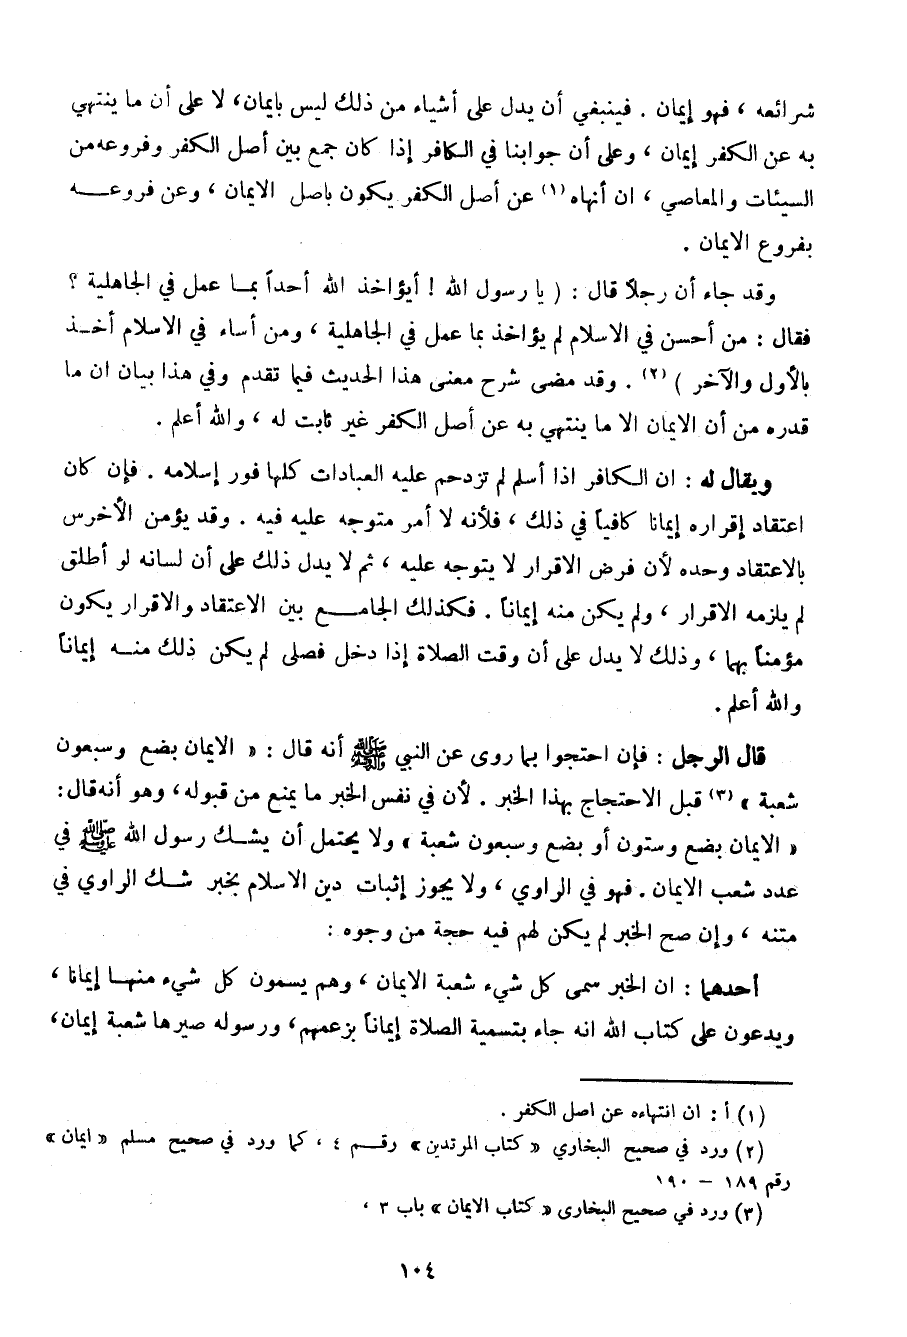 شرائعه ، فهو إيمان . فينبغي أن يدل على أشياء من ذلك ليس بايمان، لا على أن ما ينتهي
به عن الكفر إيمان ، وعلى أن جوابنا في الكافر إذا كان جمع بين أصل الكفر وفروعه من
السيئات والمعاصي ، ان أنهاه (١) عن أصل الكفر يكون باصل الايمان ، وعن فروعـــه
بفروع الايمان .
وقد جاء أن رجلاً قال : ( يا رسول الله ! أيؤاخذ الله أحداً بمــا عمل في الجاهلية ؟
فقال : من أحسن في الاسلام لم يؤاخذ بما عمل في الجاهلية ، ومن أساء في الاسلام أخــذ
بالأول والآخر ) (٢) . وقد مضى شرح معنى هذا الحديث فيما تقدم وفي هذا بيان ان ما
قدره من أن الايمان الا ما ينتهي به عن أصل الكفر غير ثابت له ، والله أعلم .
ويقال له : ان الكافر اذا أسلم لم تزدحم عليه العبادات كلها فور إسلامه . فإن كان
اعتقاد إقراره إيمانا كافياً في ذلك ، فلأنه لا أمر متوجه عليه فيه . وقد يؤمن الأخرس
بالاعتقاد وحده لأن فرض الاقرار لا يتوجه عليه ، ثم لا يدل ذلك على أن لسانه لو أطلق
لم يلزمه الاقرار ، ولم يكن منه إيماناً . فكذلك الجامـــع بين الاعتقاد والاقرار يكون
مؤمناً بهما ، وذلك لا يدل على أن وقت الصلاة إذا دخل فصلى لم يكن ذلك منــه إيماناً
والله أعلم .
قال الرجل : فإن احتجوا بما روى عن النبي ﷺ أنه قال : « الايمان بضع وسبعون
شعبة » (٣) قبل الاحتجاج بهذا الخبر . لأن في نفس الخبر ما يمنع من قبوله، وهو أنه قال :
« الايمان بضع وستون أو بضع وسبعون شعبة » ولا يحتمل أن يشــك رسول الله ﷺ في
عدد شعب الايمان . فهو في الراوي ، ولا يجوز إثبات دين الاسلام بخبر شــك الراوي في
متنه ، وإن صح الخبر لم يكن لهم فيه حجة من وجوه :
أحدهما : ان الخبر سمى كل شيء شعبة الايمان ، وهم يسمون كل شيء منهــا إيمانا ،
ويدعون على كتاب الله انه جاء بتسمية الصلاة إيماناً بزعمهم، ورسوله صيرها شعبة إيمان،
(١) أ : ان انتهاءه عن اصل الكفر .
(٢) ورد في صحيح البخاري « كتاب المرتدين » رقــم ٤ ، كما ورد في صحيح مسلم « ايمان »
رقم ١٨٩ – ١٩٠
(٣) ورد في صحيح البخارى « كتاب الايمان » باب ٣ ،
١٠٤